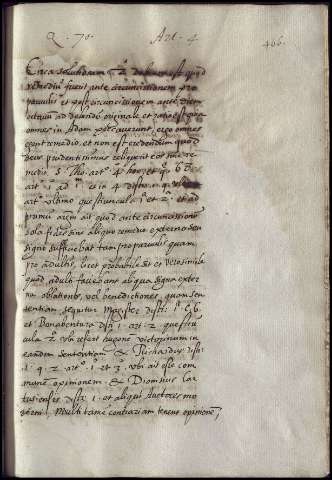 Q. 70. Art. 4 466.
Circa solutionem dubium est quod
remedium fuerit ante circuncisionem pro
parvulis et post circuncisionem ante diem
octavum ad delendū originale et ratio est quia
omnes in Adam peccaverunt, ergo omnes
remedio, et non est credendum quod
Deus prudentissimus reliquerit eos sine re
medio. S. Tho. artº. 4 hoc, et q. 6
art. 1 ad in 4 distin.
art. ultimo questiuncula 1ª et 2ª et ad
primum ait quod ante circuncisionem
sola fides sine aliquo remedio externo seu
signo sufficiebat tam pro parvulis quam
pro adultis, licet probabile sit et verosimile
quod adulti faciebant aliqua signa exter
na oblationis, vel benedictiones, quam sen
tentiam sequitur Magister dist. 1ª
et Bonaventura dist. 1 art. 2 questiū
cula 2 ubi refert hugonē victorinum in
eandem sententiam & Richardus dist.
1. q. 2 artº 1 et 3. ubi ait esse com
munē opinionem & Dionisius Car
tusienses dist. 1 et aliqui Auctores mo
derni. Multi tamē contrariam tenent opinionē,